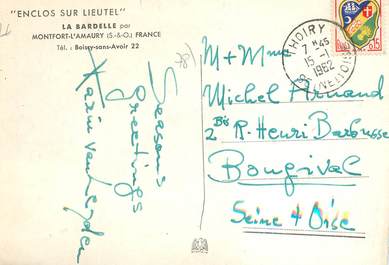 "ENCLOS SUR LIEUTEL"
LA BARDELLE par
MONTFORT-L'AMAURY (S.-&-O.) FRANCE
Tél. : Boissy-sans-Avoir 22
Season's
Greetings
Karin van Leyden
THOIRY
7 H 45
15 - 1
1962
0,15
M + Mme
Michel Arnaud
2 Bis R. Henri Barbusse
Bougival
Seine & Oise